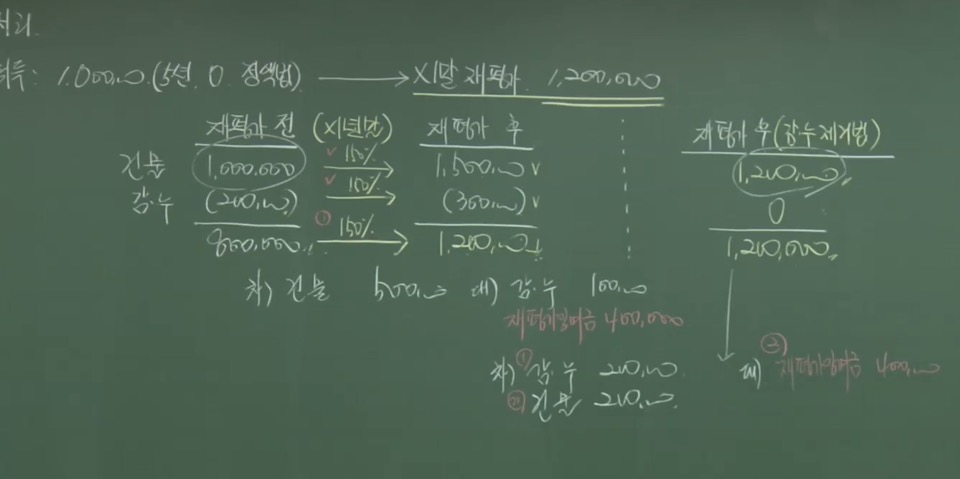 처리.
취득: 1,000,000 (5년, 0, 정액법) → X1말 재평가 1,200,000
재평가 전 (X1년말) 재평가 후
재평가 후 (감누제거법)
건물 1,000,000 ✓ 150% → 1,500,000 ✓
1,200,000
감·누 (200,000) ✓ 150% → (300,000) ✓
0
800,000 ① 150% → 1,200,000
1,200,000
차) 건물 500,000 대) 감·누 100,000
재평가잉여금 400,000
차) ① 감·누 200,000 대) ② 재평가잉여금 400,000
② 건물 200,000